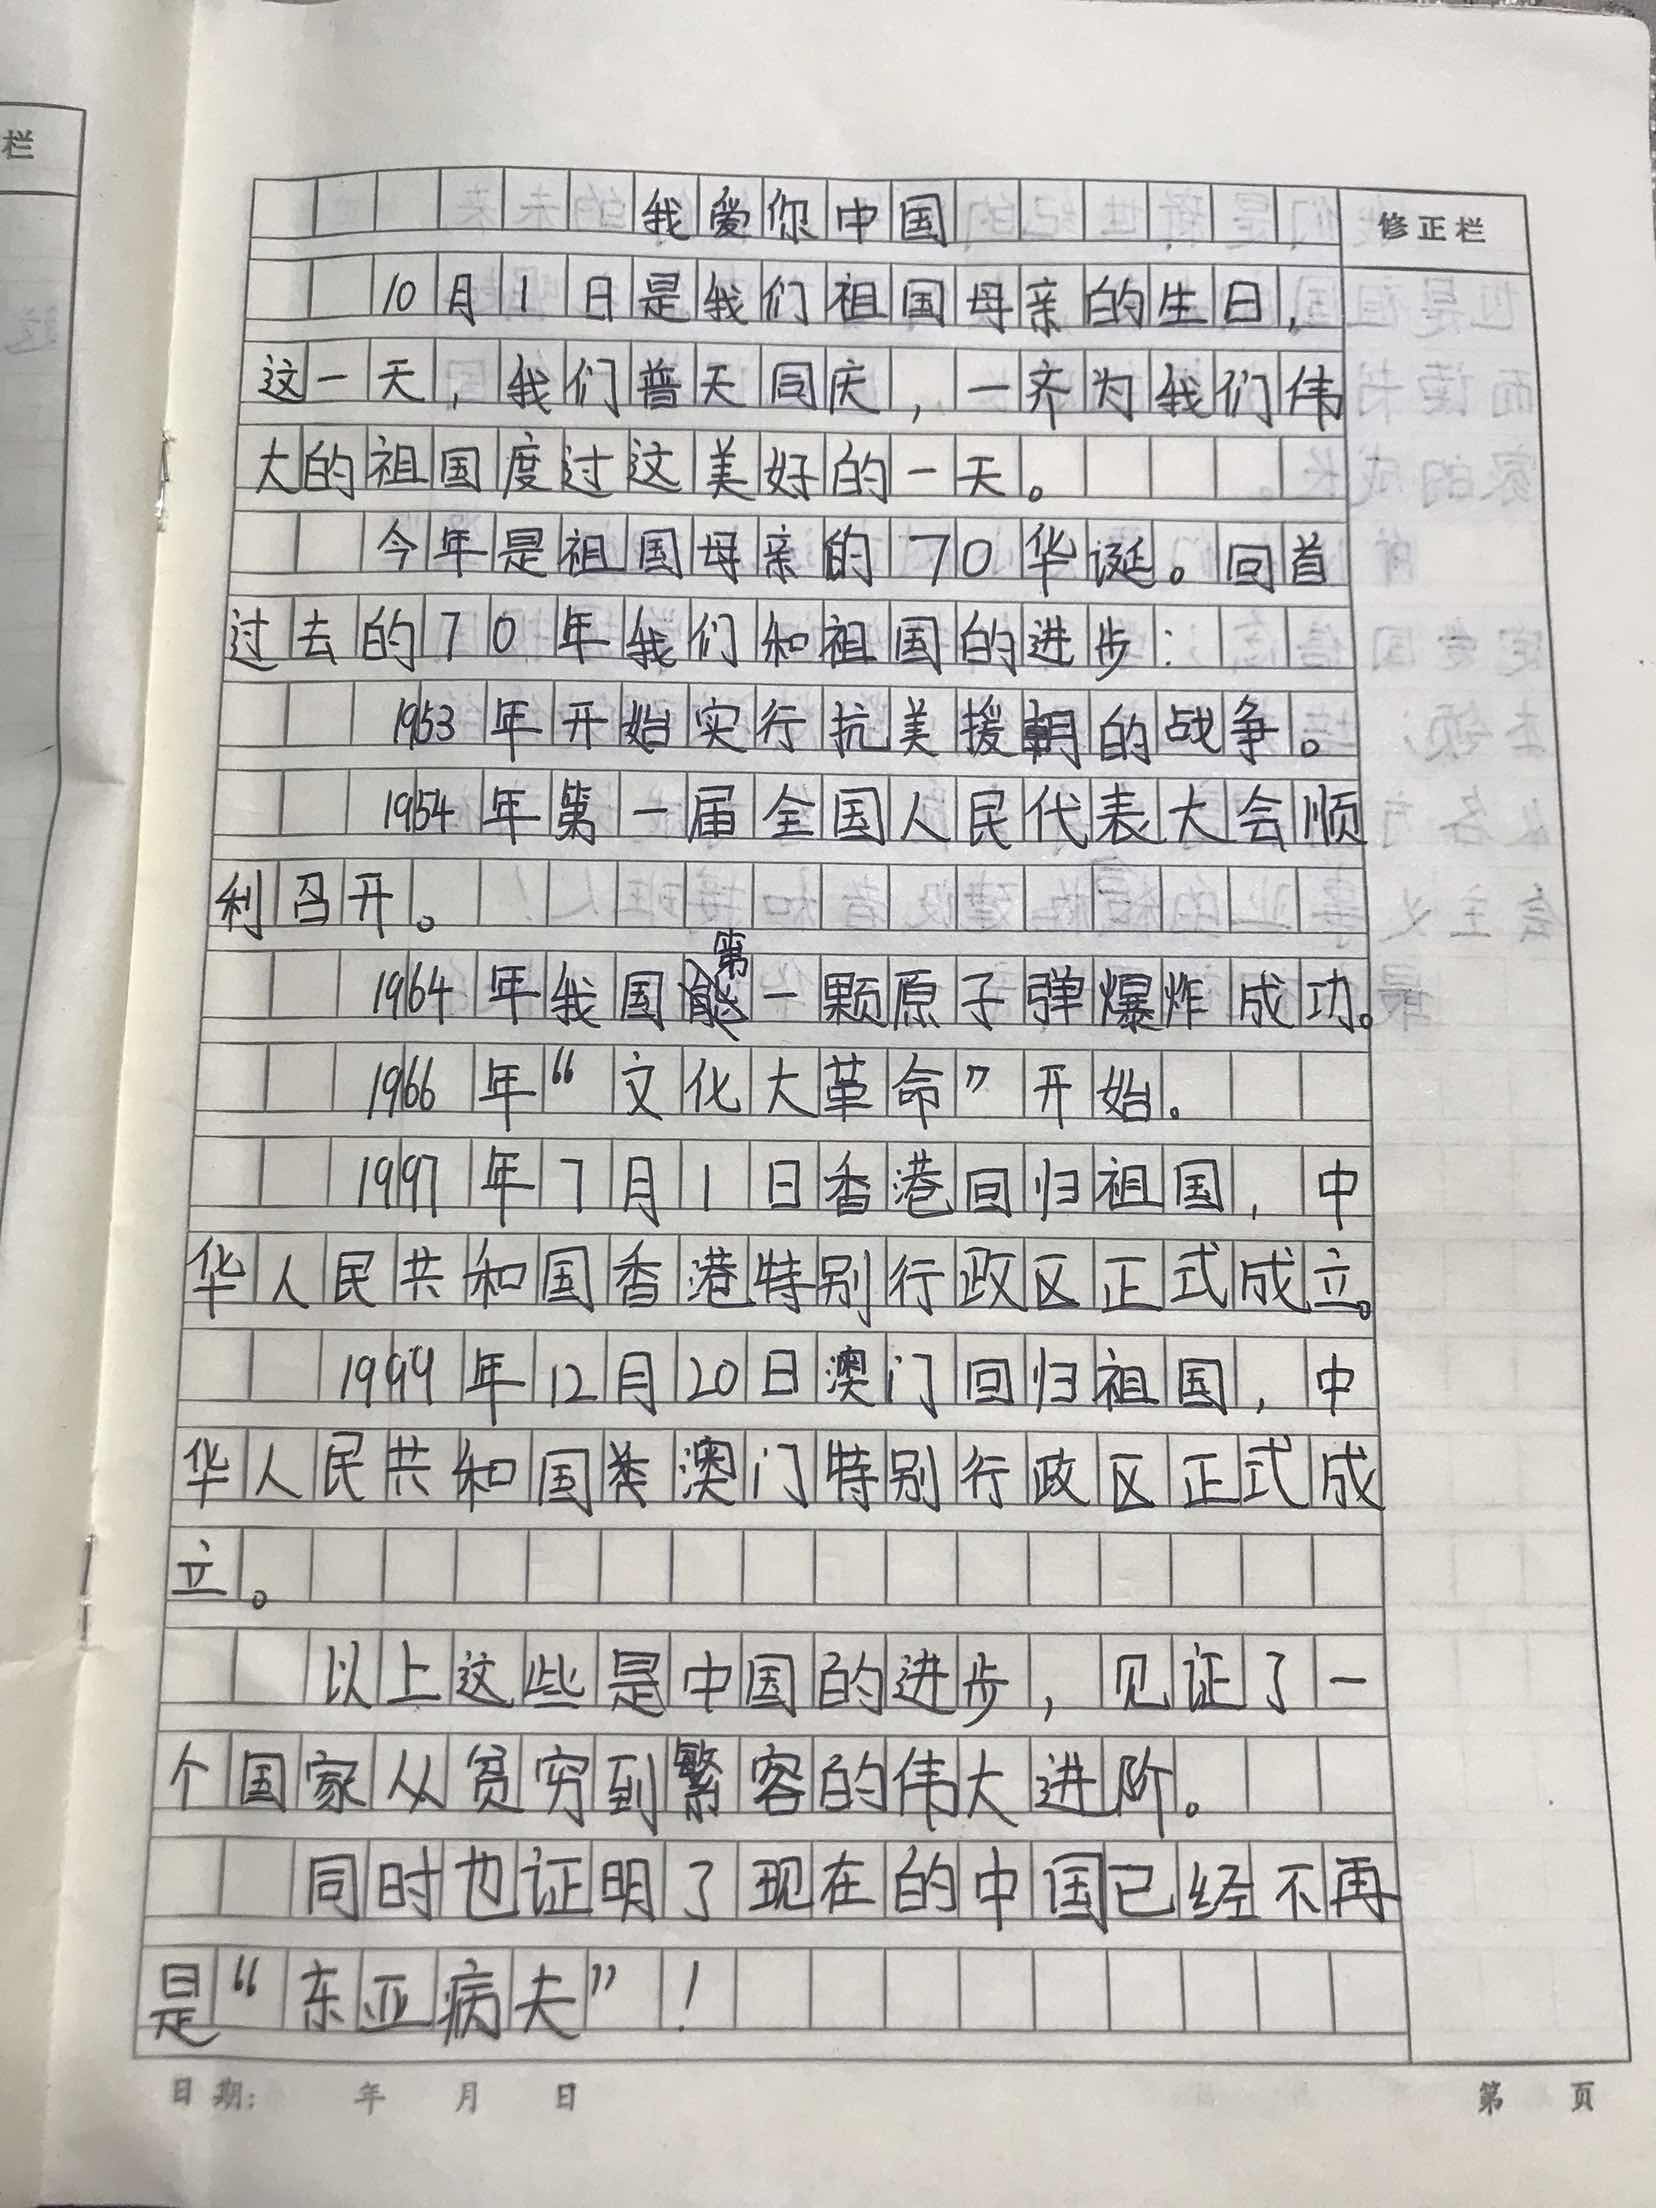 栏
我爱你中国
修正栏
10月1日是我们祖国母亲的生日，
这一天，我们普天同庆，一齐为我们伟
大的祖国度过这美好的一天。
今年是祖国母亲的70华诞。回首
过去的70年我们和祖国的进步：
1953年开始实行抗美援朝的战争。
1954年第一届全国人民代表大会顺
利召开。
第
1964年我国一颗原子弹爆炸成功。
1966年“文化大革命”开始。
1997年7月1日香港回归祖国，中
华人民共和国香港特别行政区正式成立。
1999年12月20日澳门回归祖国，中
华人民共和国澳门特别行政区正式成
立。
以上这些是中国的进步，见证了一
个国家从贫穷到繁容的伟大进阶。
同时也证明了现在的中国已经不再
是“东亚病夫”！
日期： 年 月 日
第 页